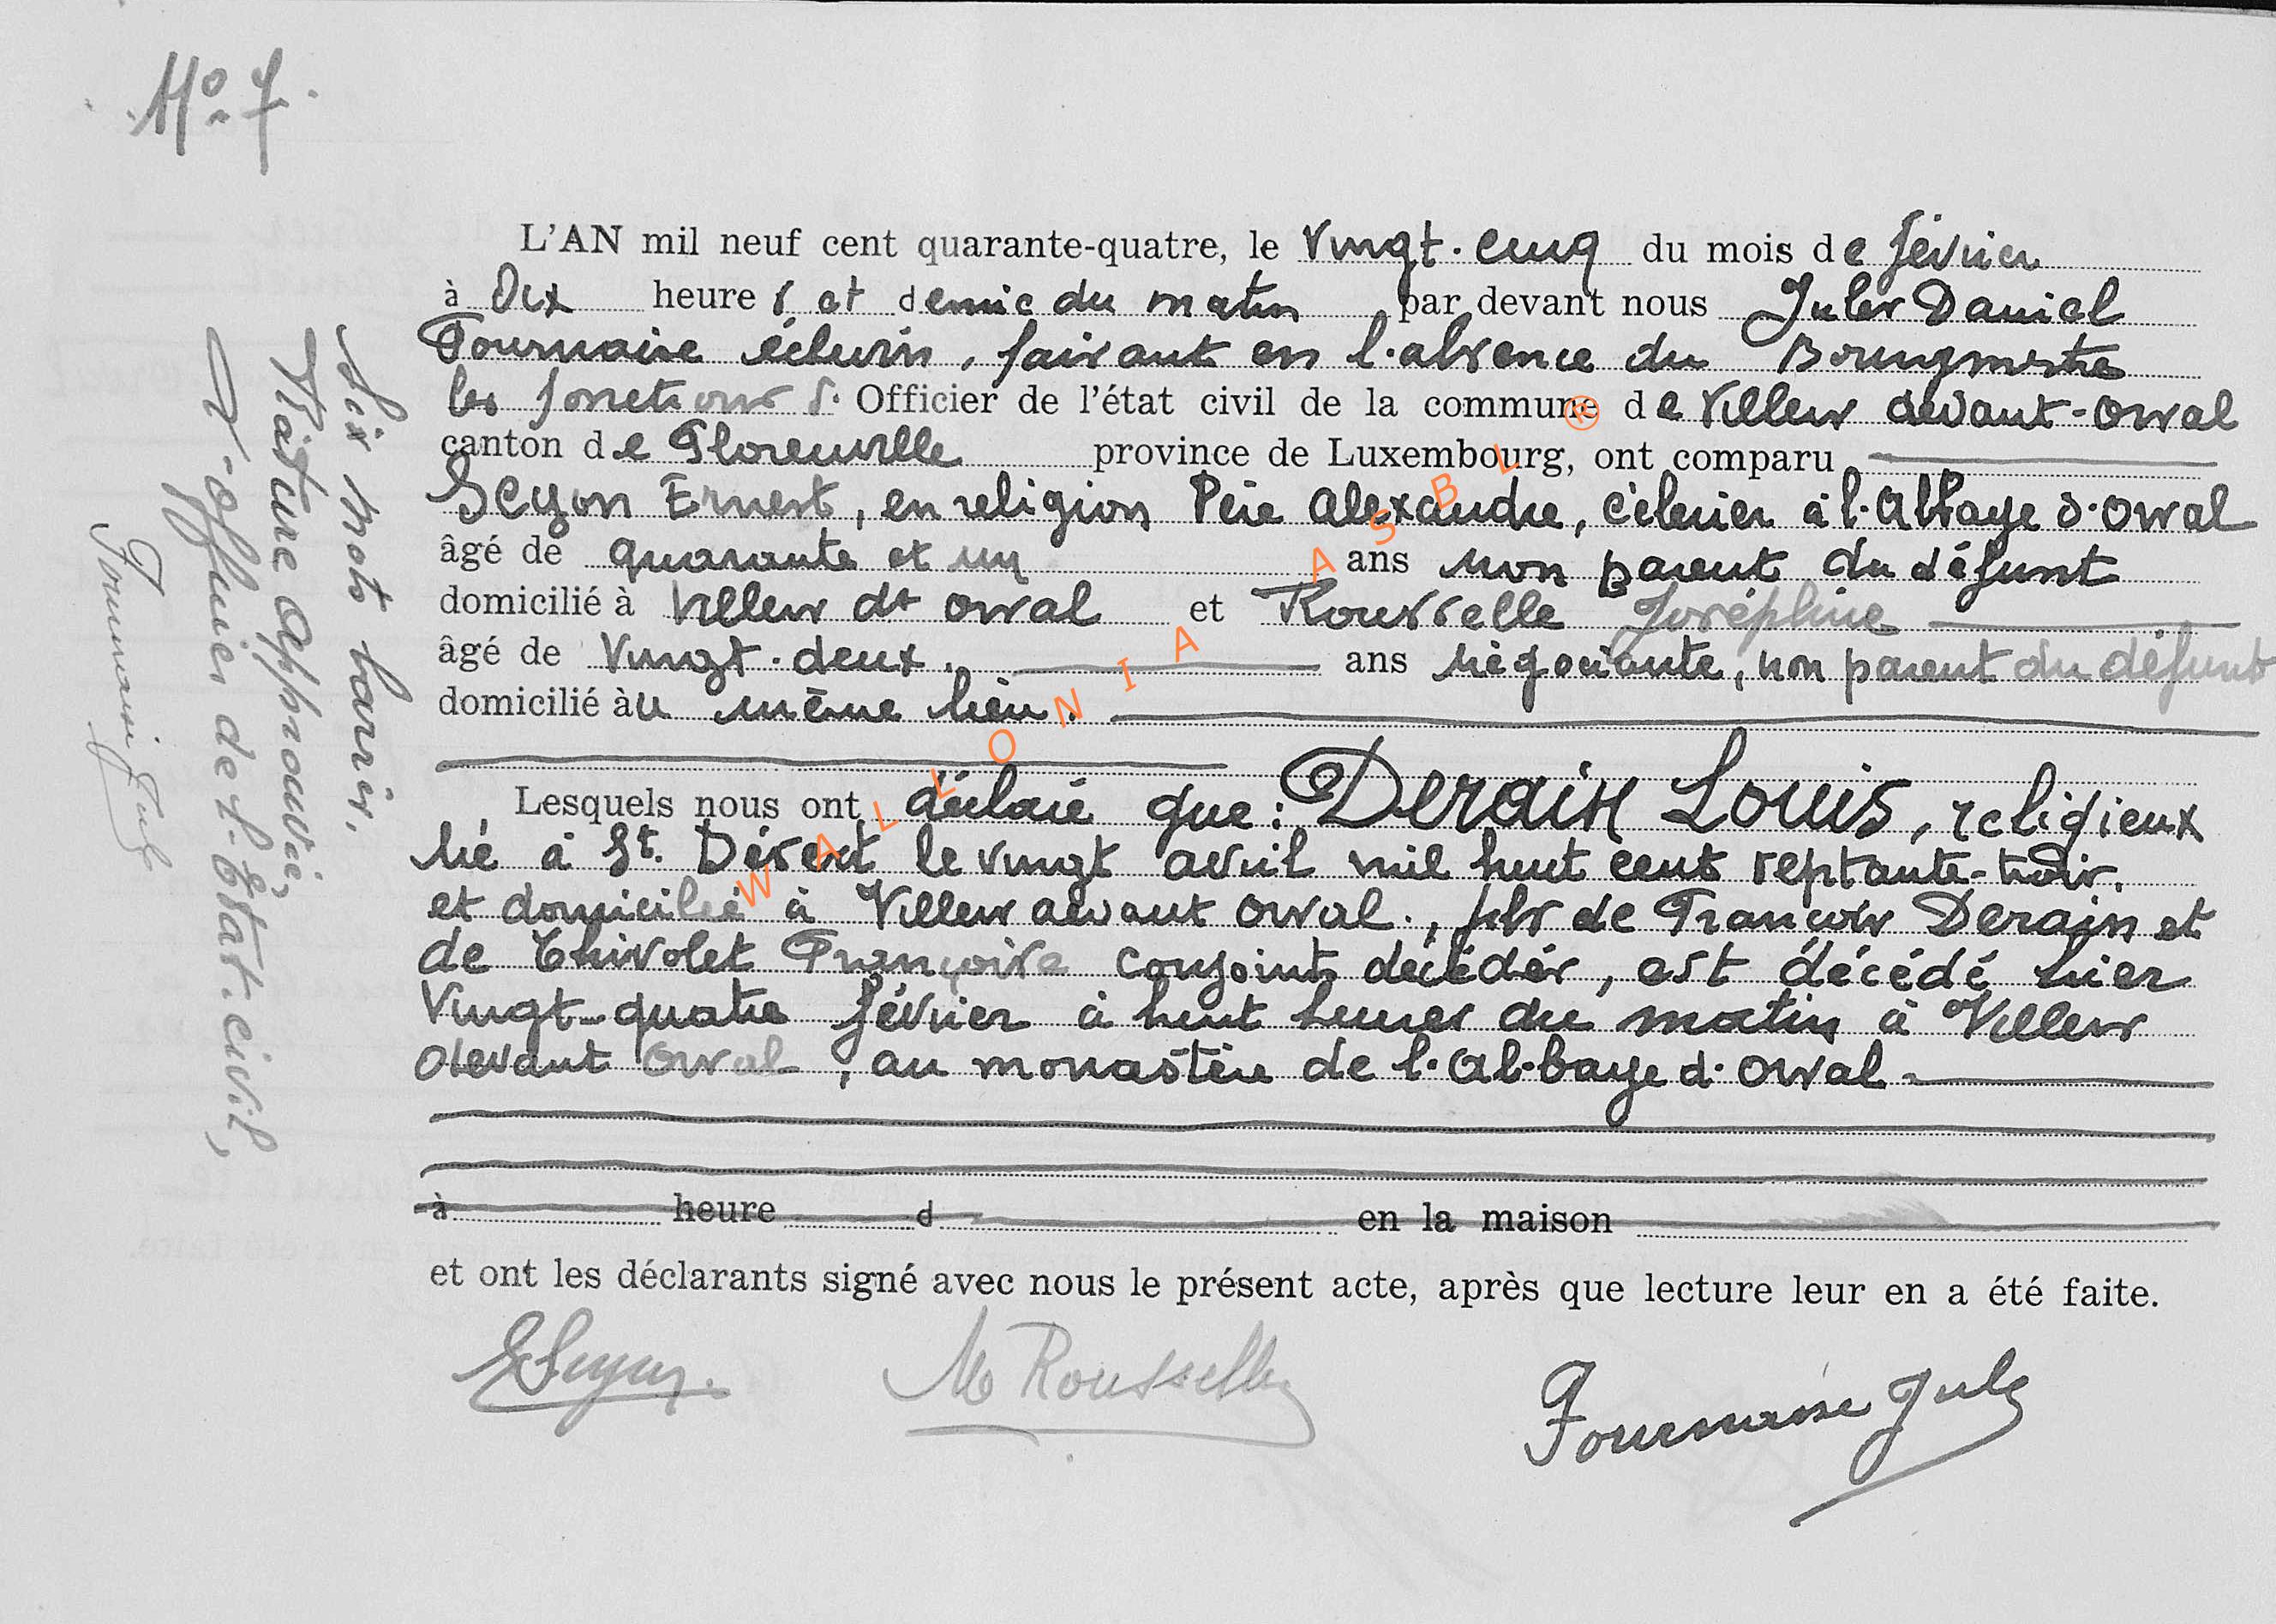 No 7.
L'AN mil neuf cent quarante-quatre, le Vingt-cinq du mois de février
à Dix heures et demie du matin par devant nous Jules Daniel
Fournaise échevin, faisant en l'absence du Bourgmestre
les fonctions d' Officier de l'état civil de la commune de Villers devant-Orval
canton de Florenville province de Luxembourg, ont comparu
Seyon Ernest, en religion Père Alexandre, célerier à l'Abbaye d'Orval
âgé de quarante et un ans non parent du défunt
domicilié à Villers dt Orval et Rousselle Joséphine
âgé de Vingt-deux. ans négociante, non parent du défunt
domicilié àu même lieu.
Lesquels nous ont déclaré que: Derain Louis, religieux
né à St. Désert le vingt avril mil huit cent septante-trois.
et domicilié à Villers devant Orval., fils de François Derain et
de Chivolet Françoise conjoints décédés, est décédé hier
Vingt-quatre février à huit heures du matin à Villers
devant Orval, au monastère de l'Abbaye d'Orval
à heure d en la maison
et ont les déclarants signé avec nous le présent acte, après que lecture leur en a été faite.
M Rousselle
Fournaise Jules
Six mots barrés.
Rature approuvée,
L'officier de l'État-civil,
Fournaise Jules
WALLONIA ASBL ®